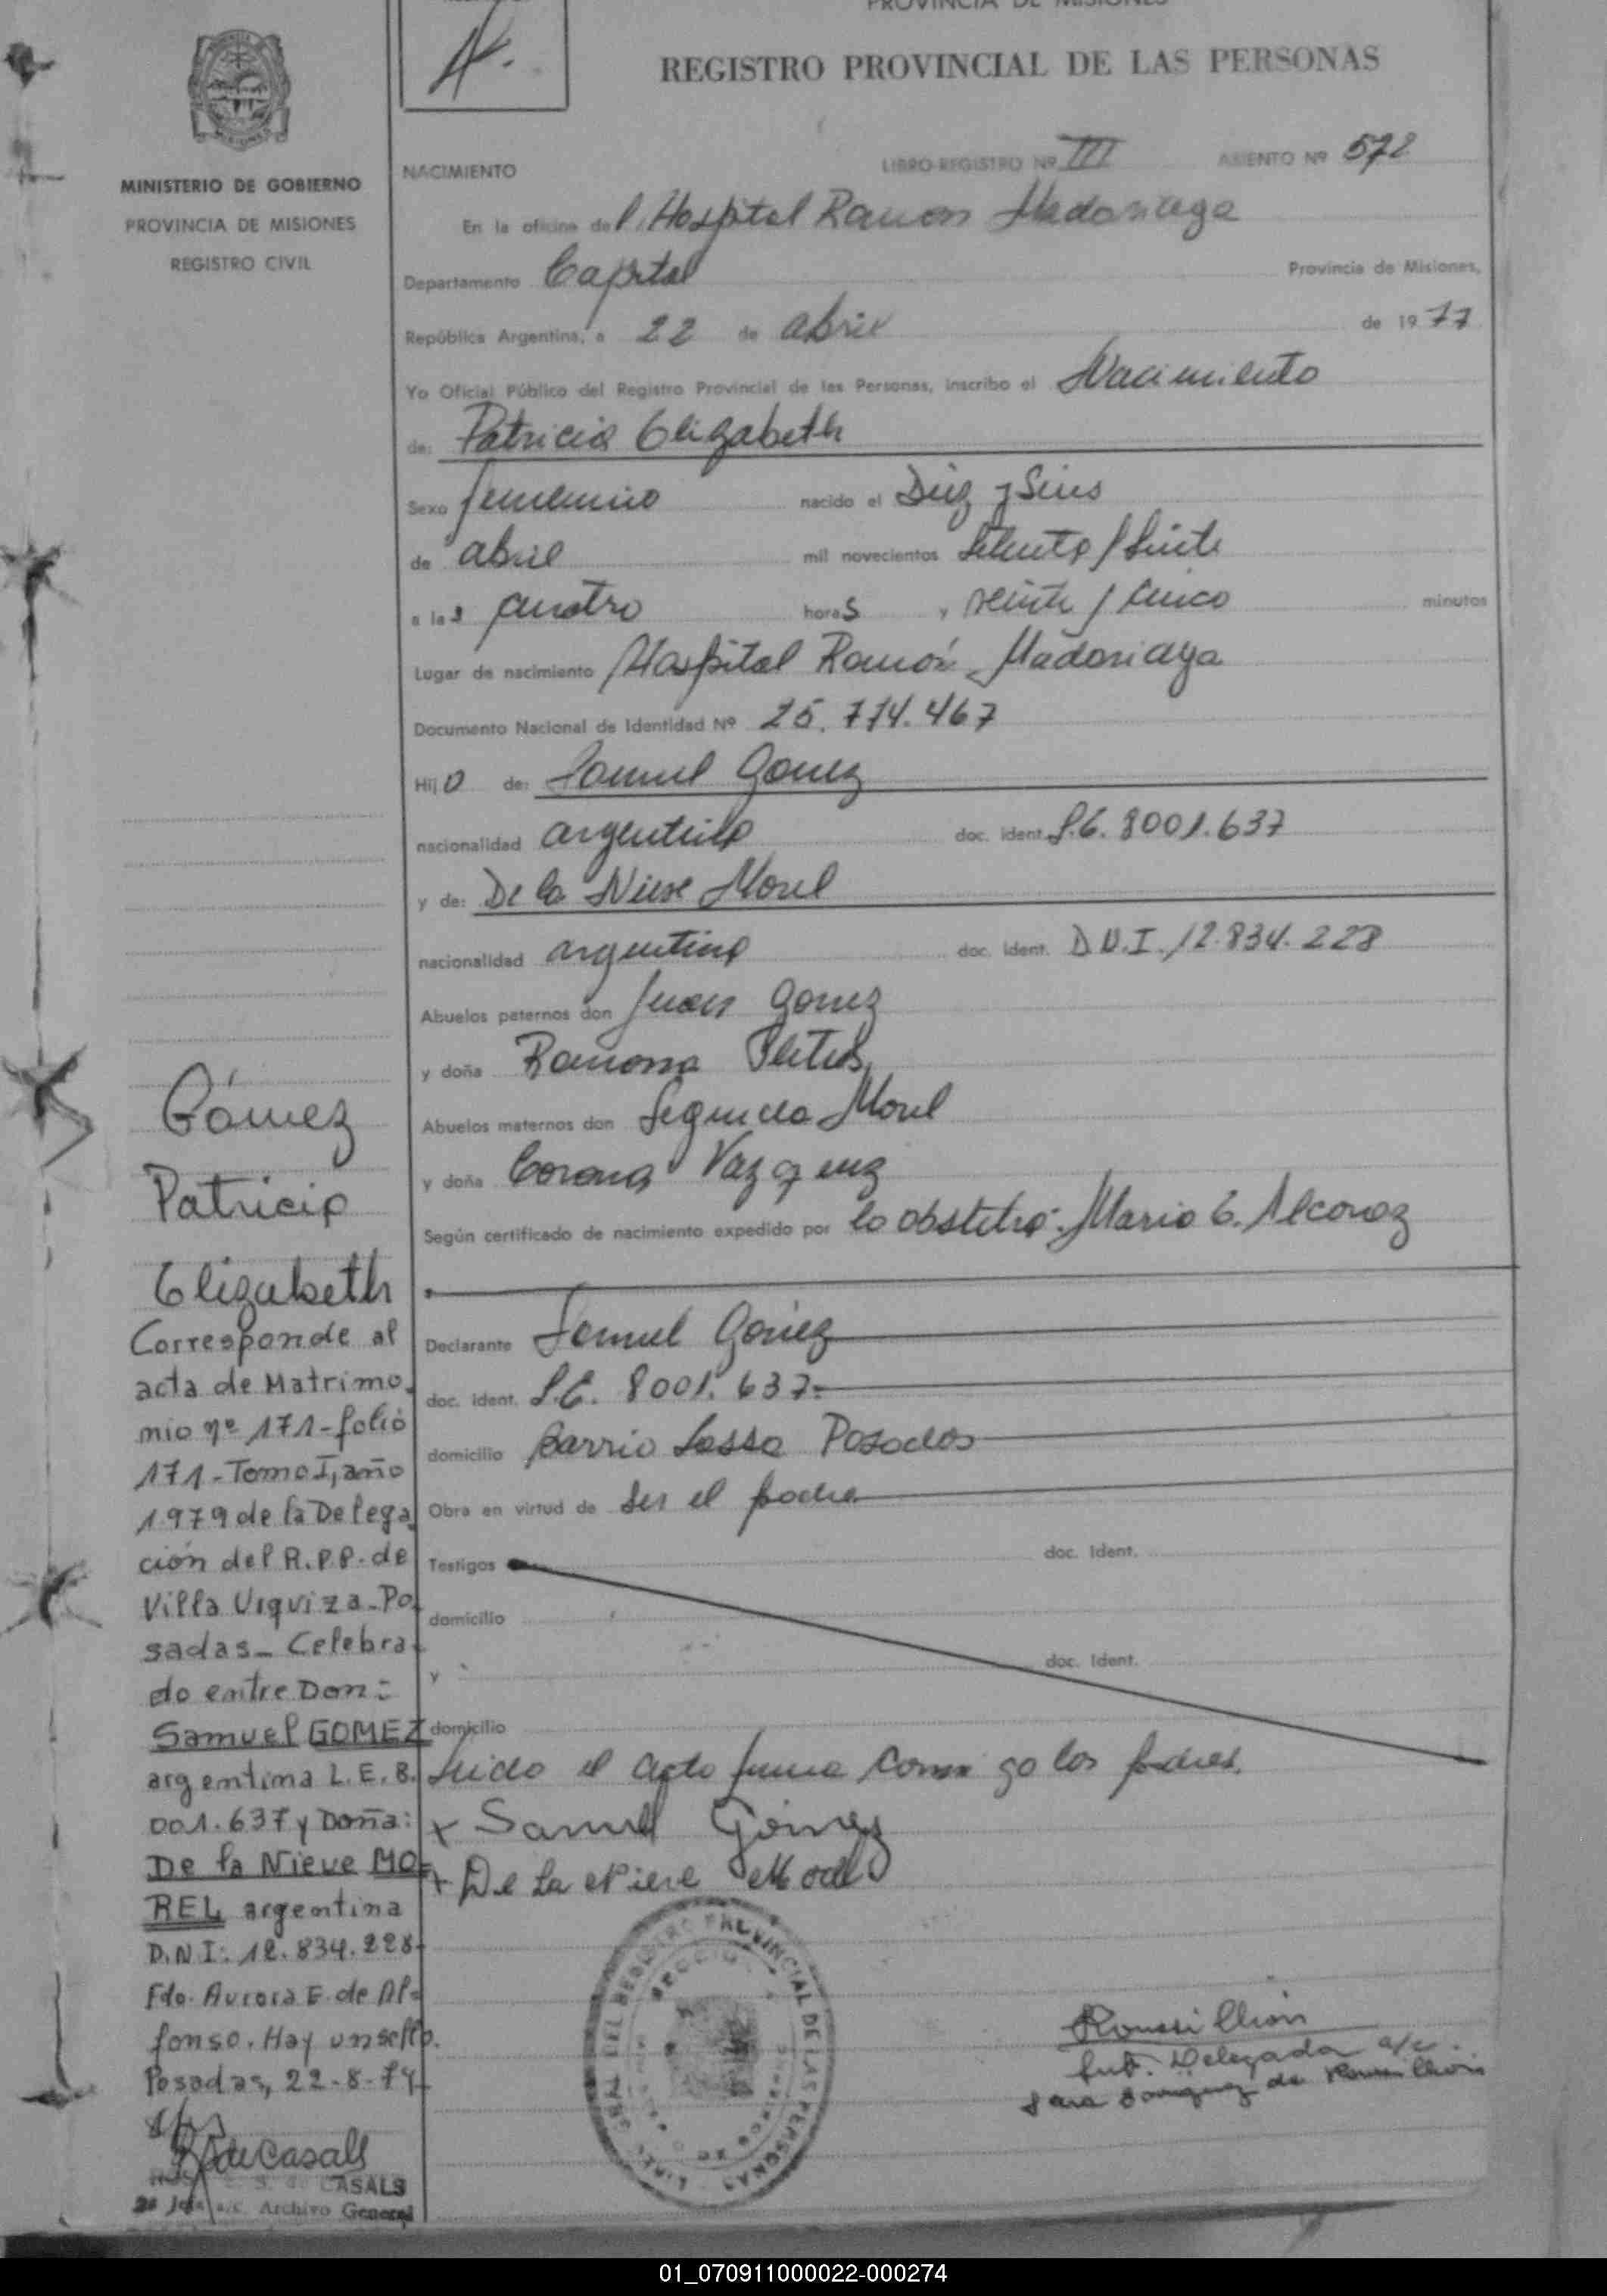 PROVINCIA DE MISIONES
REGISTRO PROVINCIAL DE LAS PERSONAS
MINISTERIO DE GOBIERNO
PROVINCIA DE MISIONES
REGISTRO CIVIL
NACIMIENTO LIBRO-REGISTRO Nº III ASIENTO Nº 572
En la oficina del Hospital Ramon Madariaga
Departamento Capital Provincia de Misiones,
República Argentina, a 22 de abril de 1977
Yo Oficial Público del Registro Provincial de las Personas, inscribo el Nacimiento
de: Patricia Elizabeth
Sexo femenino nacido el Diez y Seis
de abril mil novecientos setenta y siete
a las cuatro horas y veinte y cinco minutos
Lugar de nacimiento Hospital Ramón Madariaga
Documento Nacional de Identidad Nº 25.774.467
Hijo de: Samuel Gomez
nacionalidad argentino doc. ident. L.E. 8001.637
y de: De la Nieve Morel
nacionalidad argentina doc. ident. D.N.I. 12.834.228
Abuelos paternos don Juan Gomez
y doña Ramona
Abuelos maternos don Segundo Morel
y doña Corona Vazquez
Según certificado de nacimiento expedido por la obstetra: Maria E. Alcaraz
Declarante Samuel Gomez
doc. ident. L.E. 8001.637.
domicilio Barrio Sassa Posadas
Obra en virtud de ser el padre
Testigos doc. Ident.
domicilio
y doc. Ident.
domicilio
Leido el acto firma conmigo los padres.
x Samuel Gómez
+ De La Nieve Morel
Gómez
Patricia
Elizabeth
Corresponde al
acta de Matrimo
nio nº 171-folio
171-Tomo I, año
1979 de la Delega
ción del R.P.P. de
Villa Urquiza-Po
sadas- Celebra
do entre Don:
Samuel GOMEZ
argentina L.E. 8.
001.637 y Doña:
De la Nieve MO-
REL argentina
D.N.I: 12.834.228-
Fdo. Aurora E. de Al-
fonso. Hay un sello.
Posadas, 22-8-79
de Casals
S. de CASALS
a/c. Archivo General
REGISTRO PROVINCIAL DE LAS PERSONAS
Roussillion
Delegada a/c.
Sara de Roussillion
01_070911000022-000274